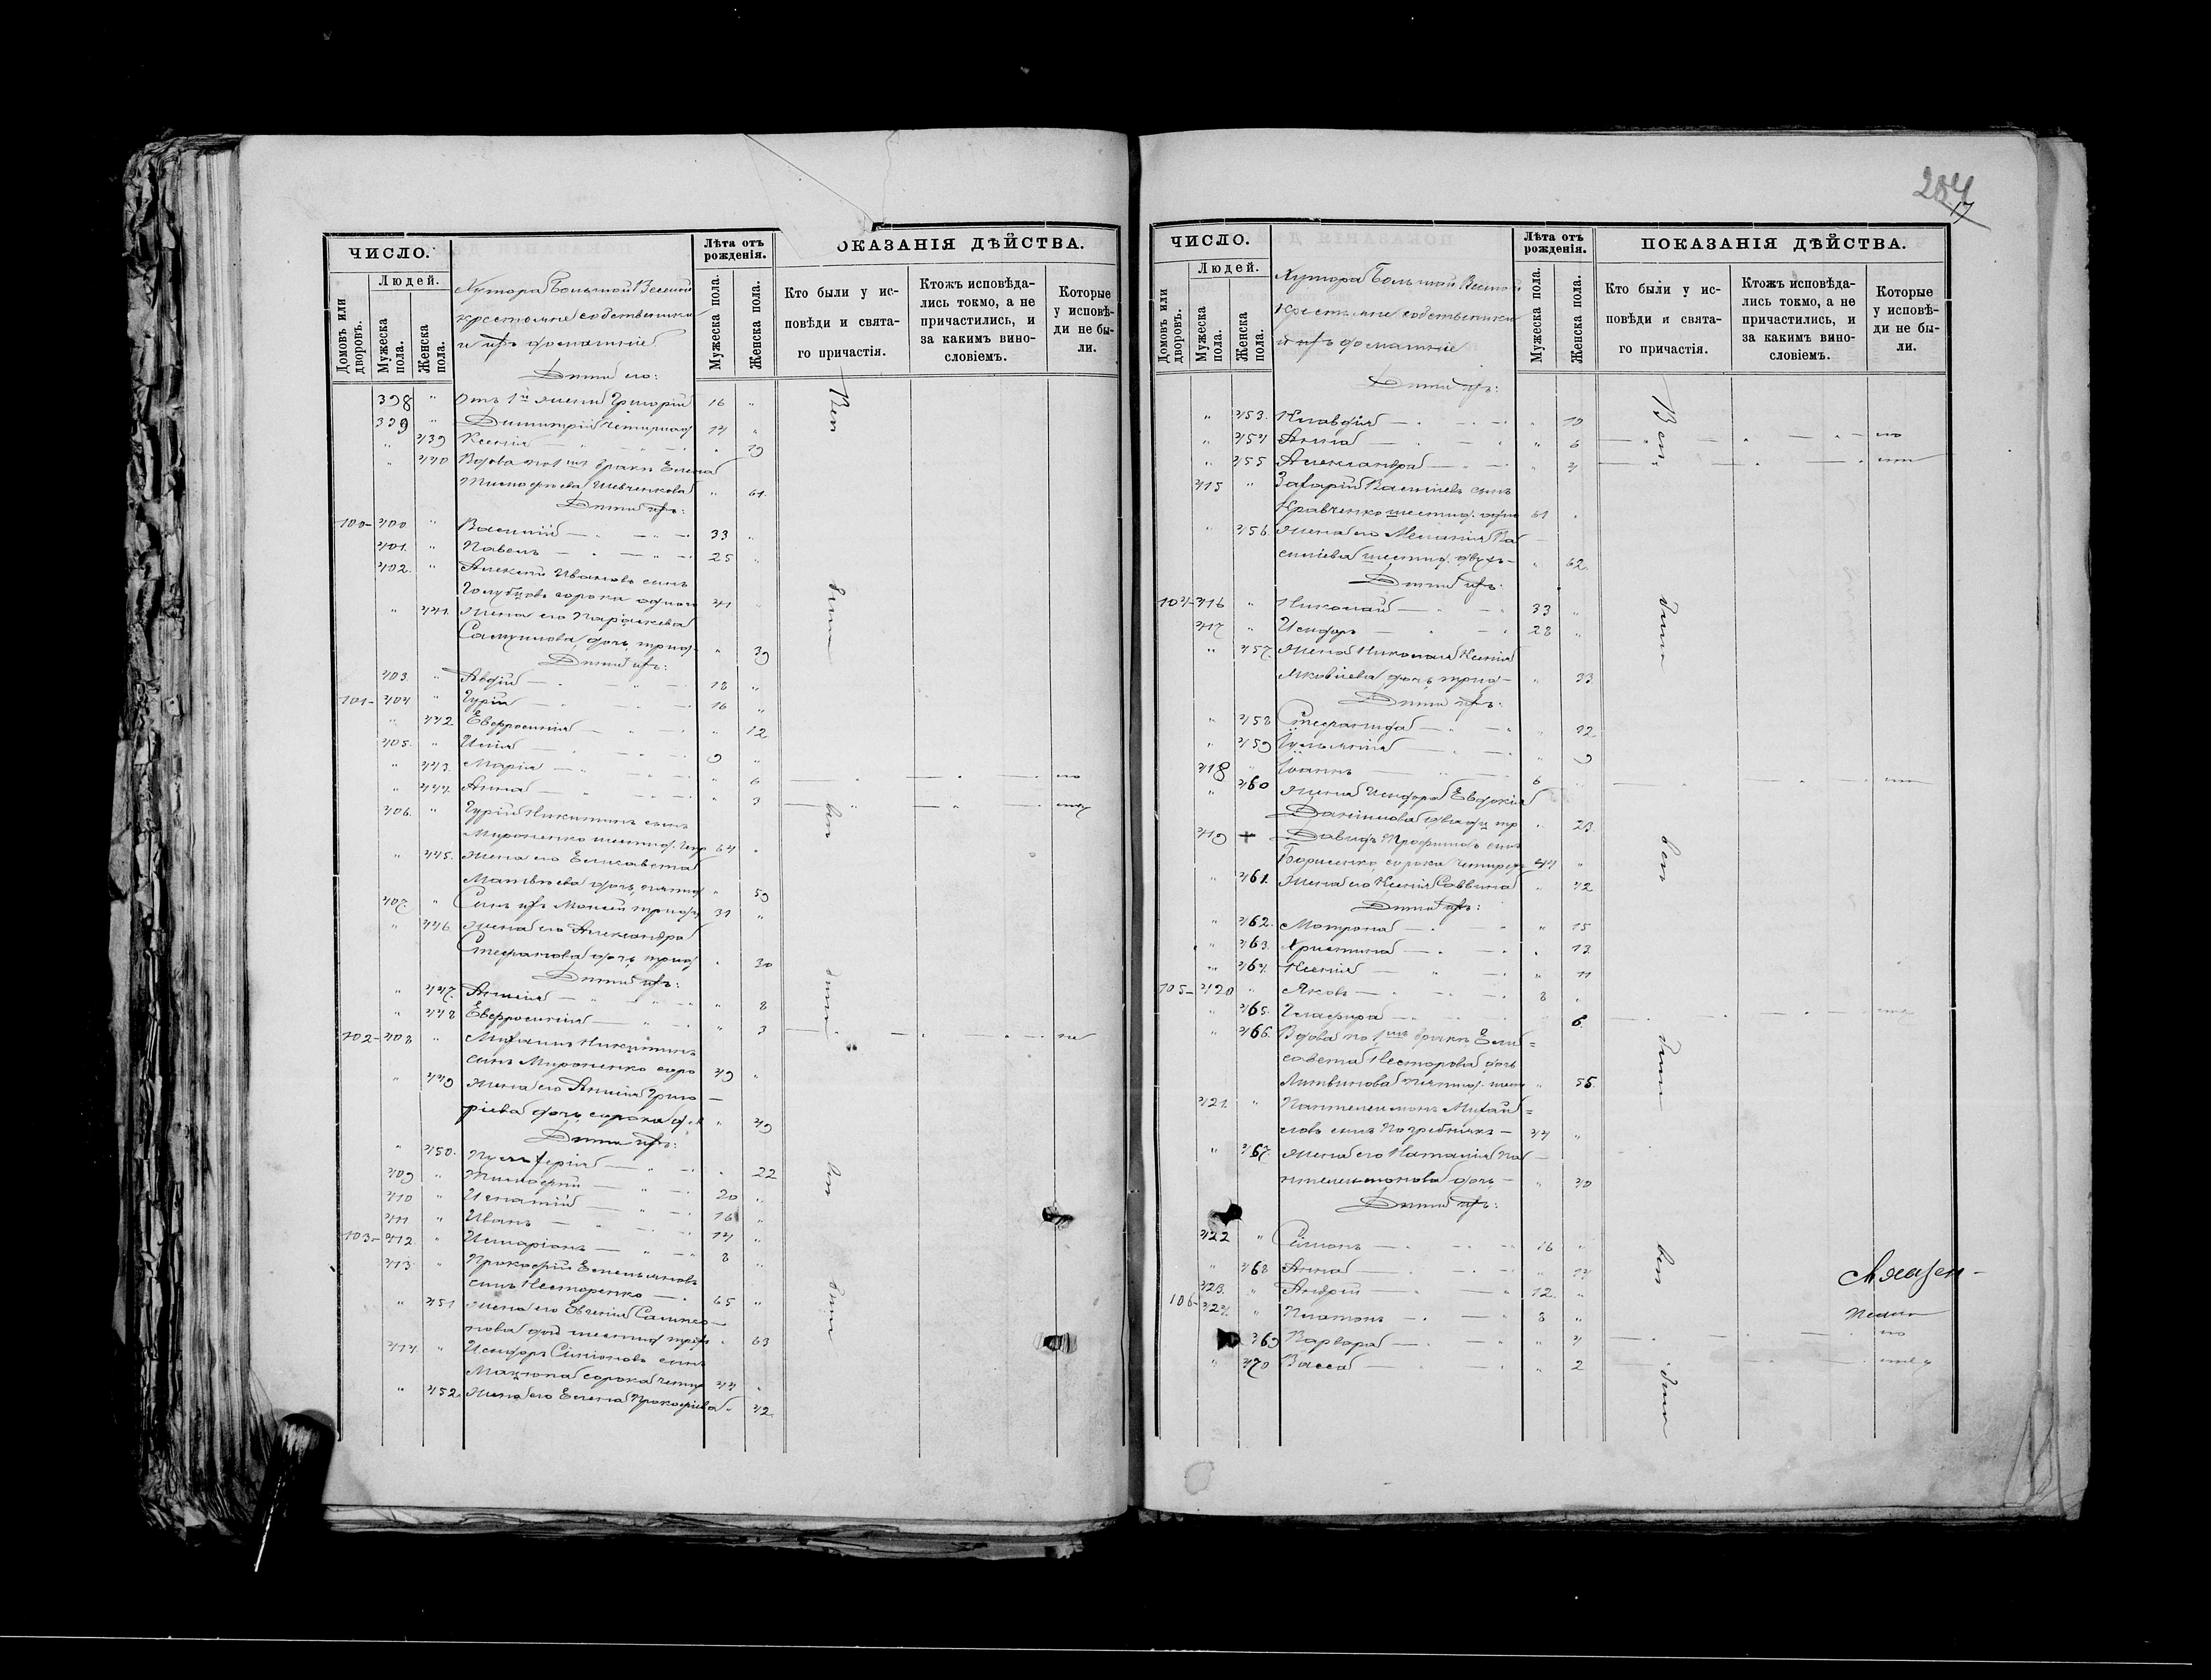 ЧИСЛО.
Людей.
Домовъ или дворовъ.
Мужеска пола.
Женска пола.
Хутора Большой Веселой
крестьяне собственники
и ихъ домашніе
Лѣта отъ рожденія.
Мужеска пола.
Женска пола.
ОКАЗАНІЯ ДѢЙСТВА.
Кто были у ис-
повѣди и свята-
го причастія.
Ктожъ исповѣда-
лись токмо, а не
причастились, и
за какимъ вино-
словіемъ.
Которые
у исповѣ-
ди не бы-
ли.
Дѣти его:
398 " Отъ 1й жены Григорій 16 "
399 " Димитрій 14 "
" 439 Ксенія " 19
" 440 Вдова по 1мъ бракѣ Елена
Тимофѣева Шевченкова " 61.
Дѣти ихъ:
100- 400 " Василій 33 "
401. " Павелъ 25 "
402. " Алексѣй Ивановъ сынъ
Голубцовъ сорока одного 41 "
" 441. Жена его Параскева
Самуилова дочь " 39
Дѣти ихъ:
403. " Авдій 18 "
101- 404 " Гурій 16 "
" 442 Евфросинія " 12
405. " Илія 9 "
" 443. Марія " 6
" 444. Анна " 3
406. " Гурій Никитинъ сынъ
Мироненко 64 "
" 445. Жена его Елисавета
Матвѣева дочь " 59
407. " Сынъ ихъ Моисей 31 "
" 446. Жена его Александра
Стефанова дочь " 30
Дѣти ихъ:
" 447. Анисія " 8
" 448 Евфросинія " 3
102- 408 " Михаилъ Никитинъ
сынъ Мироненко 49 "
" 449 Жена его Анисія Григо
ріева дочь сорока " 49
Дѣти ихъ:
" 450. " 22
409 " Тимофей 20 "
410 " Игнатій 16 "
411 " Иванъ 14 "
103- 412. " Иларіонъ 8 "
413. " Прокофій Емельяновъ
сынъ Несторенко 65 "
" 451 Жена его Евгенія
дочь " 63
414. " Исидоръ Симіоновъ сынъ
Мацюпа сорока 44 "
" 452. Жена его Елена Прокофіева " 42.
Вси
были
вси
были
вси
были
204
17
ЧИСЛО.
Людей.
Домовъ или дворовъ.
Мужеска пола.
Женска пола.
Хутора Большой Веселой
Крестьяне собственники
и ихъ домашніе
Лѣта отъ рожденія.
Мужеска пола.
Женска пола.
ПОКАЗАНІЯ ДѢЙСТВА.
Кто были у ис-
повѣди и свята-
го причастія.
Ктожъ исповѣда-
лись токмо, а не
причастились, и
за какимъ вино-
словіемъ.
Которые
у исповѣ-
ди не бы-
ли.
Дѣти ихъ:
" 453. Клавдія " 10
" 454 Анна " 6
" 455 Александра " 4
415 " Захарій Васильевъ сынъ
Кравченко 61 "
" 456. Жена его Меланія Ва
силіева " 62.
Дѣти ихъ:
104- 416 " Николай 33 "
417 " Исидоръ 28 "
" 457. Жена Николая Ксенія
Яковлева дочь " 33.
Дѣти ихъ:
" 458 Стефанида " 12.
" 459 Іуліанія " 9
418 " Іоаннъ 6 "
" 460 Жена Исидора Евдокія
Даніилова " 23.
419 + Давидъ Трофимовъ сынъ
Борисенко сорока 44 "
" 461. Жена его Ксенія Саввина " 42
Дѣти ихъ:
" 462. Матрона " 15
" 463. Христина " 13
" 464. Ксенія " 11
105- 420 " Яковъ 8 "
" 465. Глафира 6.
" 466. Вдова по 1мъ бракѣ Ели=
савета Несторова дочь
Литвинова " 55.
421. " Пантелеимонъ Михай=
ловъ сынъ Погребнякъ 44 "
" 467. Жена его Наталія Па
нтелеимонова дочь " 40
Дѣти ихъ:
422 " Симонъ 16 "
" 468 Анна " 14
423. " Андрей 12. "
106- 424. " Платонъ 8 "
469 Варвара " 4
" 470 Васса " 2
Вси
были
вси
были
вси
были